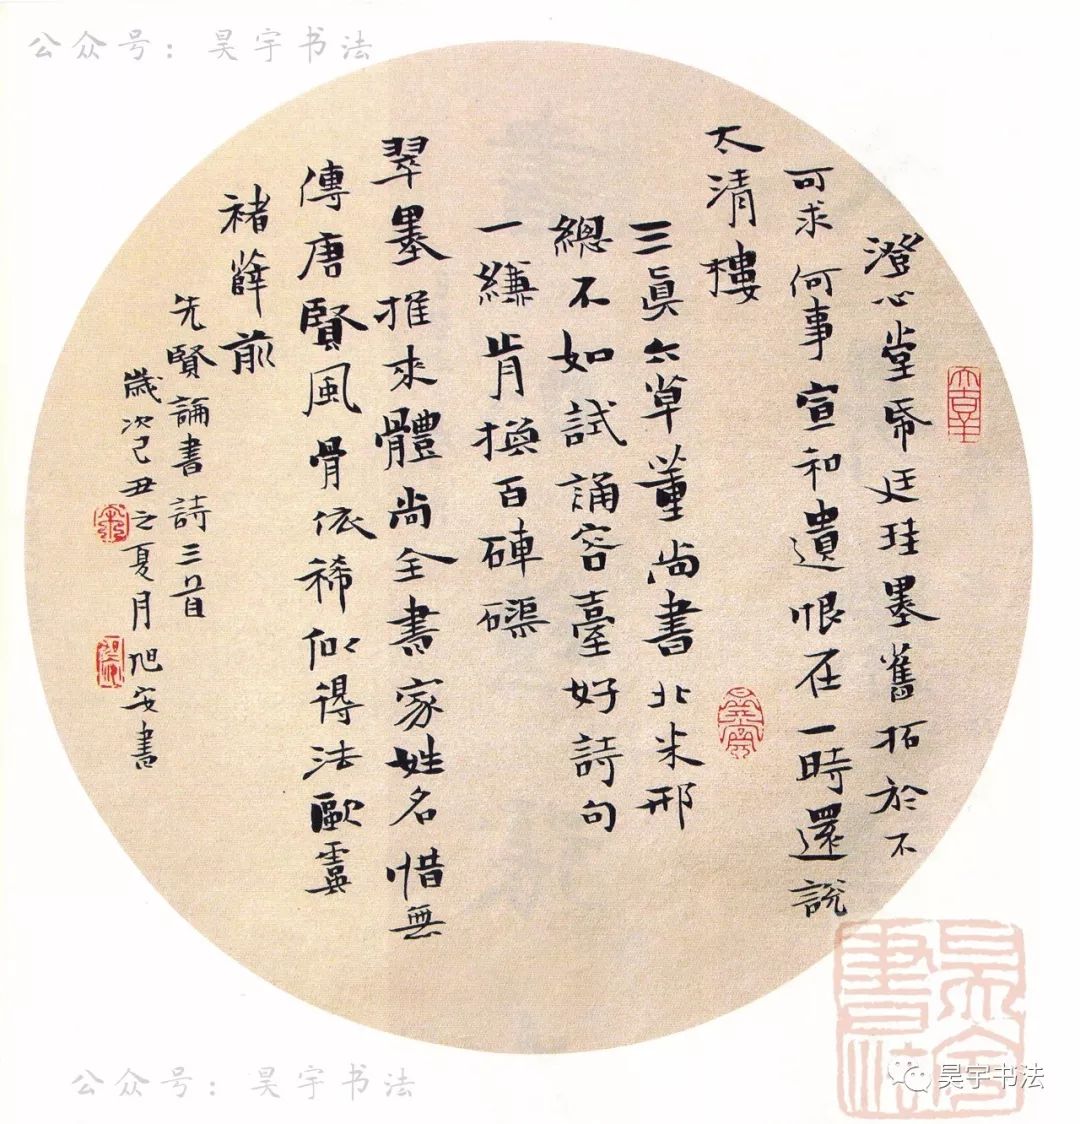 公众号：昊宇书法
澄心堂帋廷珪墨舊拓於不
可求何事宣和遺恨在一時還說
太清樓
三眞六草董尚書北米邢
總不如試誦容臺好詩句
一縑肯換百硨磲
翠墨推來體尚全書家姓名惜無
傳唐賢風骨依稀似得法歐虞
褚薛前
先賢論書詩三首
歲次己丑之夏月旭安書
昊宇書法
公众号：昊宇书法
昊宇书法